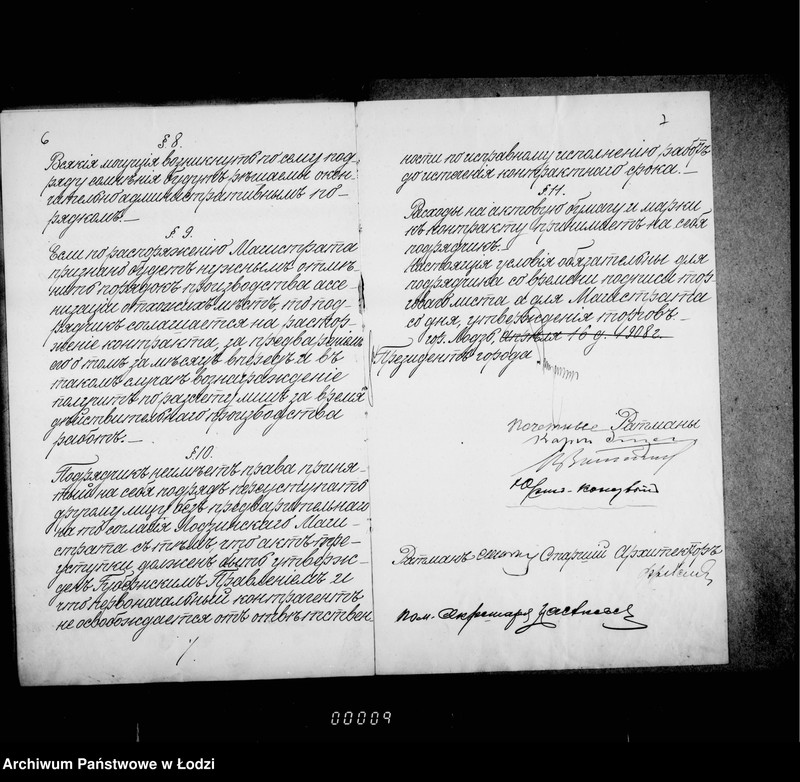 6
§ 8.
Всякія могущія возникнуть по сему под-
ряду сомнѣнія будутъ рѣшаемы окон-
чательно административнымъ по-
рядкомъ. —
§ 9.
Если по распоряженію Магистрата
признано будетъ нужнымъ отмѣ-
нить порядокъ производства ассе-
низаціи отхожихъ мѣстъ, то под-
рядчикъ соглашается на растор-
женіе контракта, за предвареніемъ
его о томъ за мѣсяцъ впередъ и въ
такомъ случаѣ вознагражденіе
получитъ по разсчету лишь за время
дѣйствительнаго производства
работъ. —
§ 10.
Подрядчикъ не имѣетъ права приня-
тый на себя подрядъ переуступать
другому лицу безъ предварительнаго
на то согласія Лодзинскаго Маги-
страта съ тѣмъ, что актъ пере-
уступки долженъ быть утверж-
денъ Губернскимъ Правленіемъ и
что первоначальный контрагентъ
не освобождается отъ отвѣтствен-
7
ности по исправному исполненію работъ
до истеченія контрактнаго срока. —
§ 11.
Расходы на актовую бумагу и марки
къ контракту принимаетъ на себя
подрядчикъ.
Настоящія условія обязательны для
подрядчика со времени подписи тор-
говаго листа а для Магистрата
со дня, утвержденія торговъ. —
гор. Лодзь Апрѣля 16 д. 1908 г.
Президентъ города
Почетные Ратманы
Юрис-консультъ
Ратманъ Старшій Архитекторъ
Пом. Секретаря
00009
Archiwum Państwowe w Łodzi